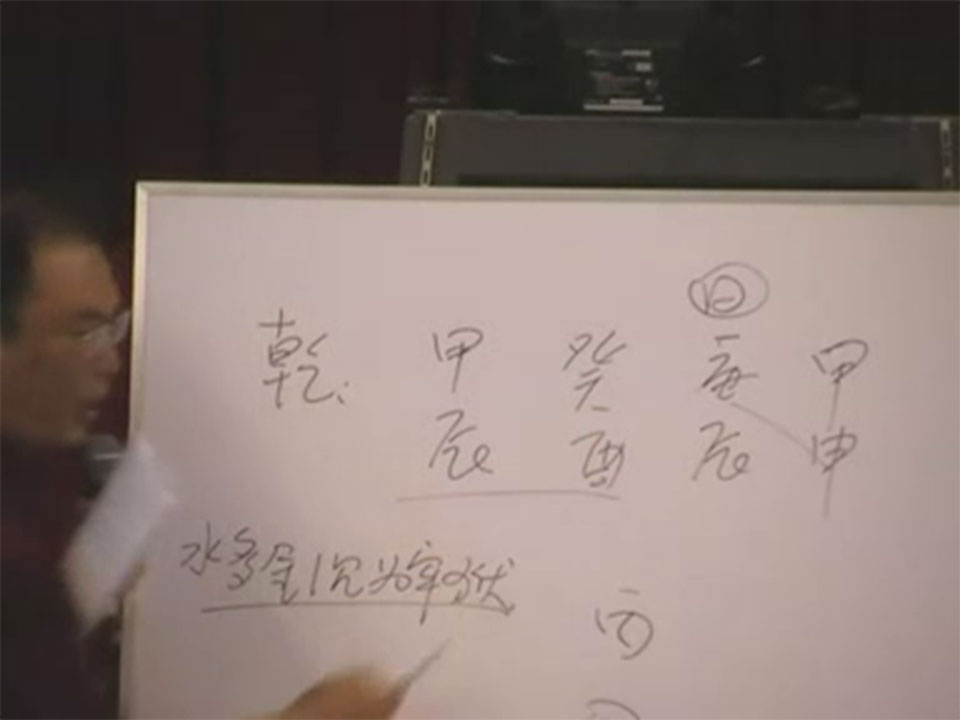 日
乾: 甲 癸 庚 甲
辰 酉 辰 申
水多金沉为牢狱
丙